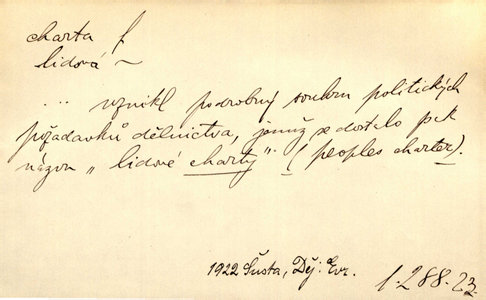 charta f
lidová ~
... vznikl podrobný souhrn politických
požadavků dělnictva, jemuž se dostalo pak
názvu „lidové charty". (peoples charter).
1922 Šusta, Děj. Evr.
1.288.23.